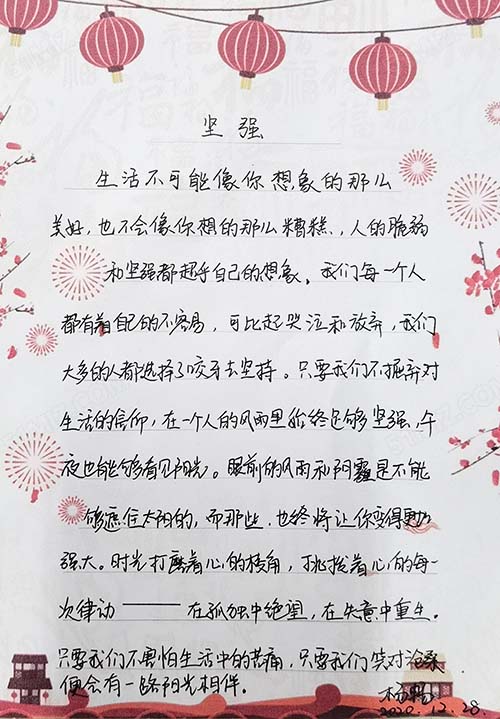 坚强
生活不可能像你想象的那么
美好，也不会像你想的那么糟糕，人的脆弱
和坚强都超乎自己的想象。我们每一个人
都有着自己的不容易，可比起哭泣和放弃，我们
大多的人都选择了咬牙去坚持。只要我们不摒弃对
生活的信仰，在一个人的风雨里始终足够坚强，午
夜也能够看见阳光。眼前的风雨和阴霾是不能
够遮住太阳的，而那些，也终将让你变得更加
强大。时光打磨着心的棱角，挑拨着心的每一
次律动——在孤独中绝望，在失意中重生。
只要我们不害怕生活中的苦痛，只要我们笑对沧桑
便会有一路阳光相伴。
2020.12.28